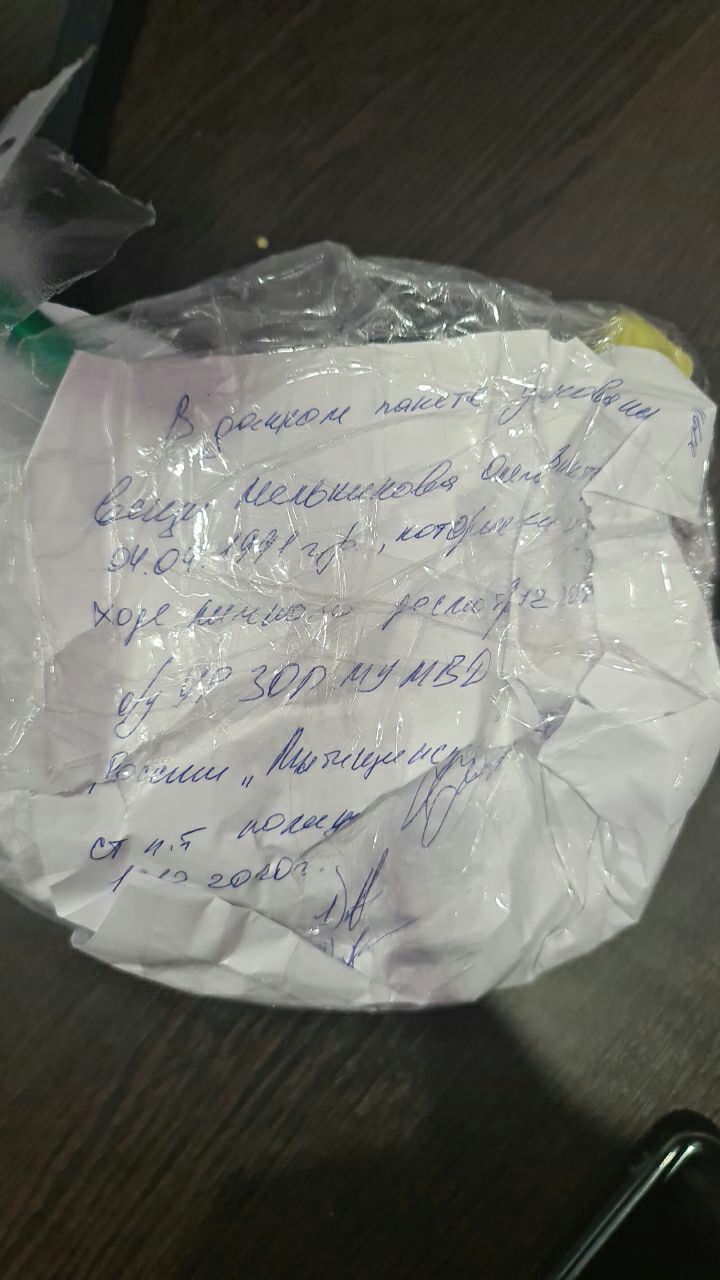 В данном пакете упакованы
вещи Мельникова Олег Викт
04.04.1991 г.р.,
ходе личного досмотр 12
о/у УР ЗОП МУ МВД
России „Мытищинс
ст л-т полиц
2020г.
1)